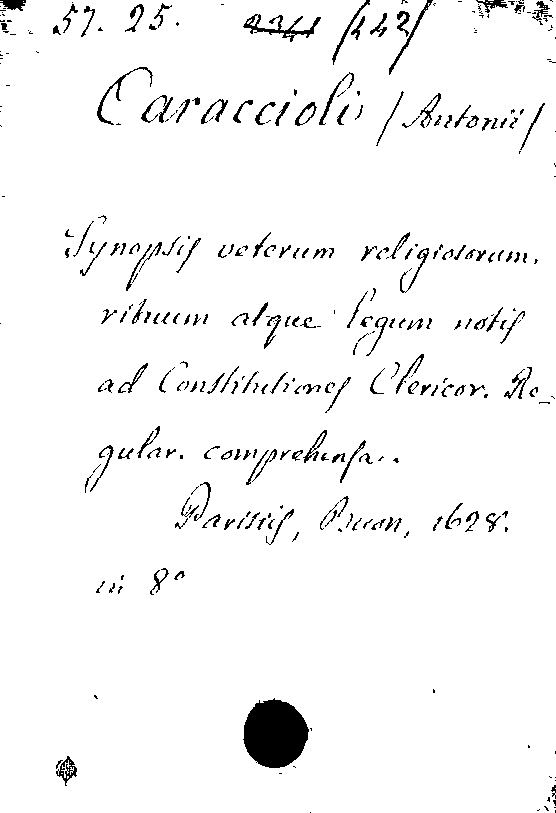 57. 25. 2341 /442/
Caraccioli /Antonii/
Synopsis veterum religiosorum.
rituum atque legum notis
ad Constitutiones Clericor. Re-
gular. comprehensa..
Parisiis, Buon, 1628.
in 8°